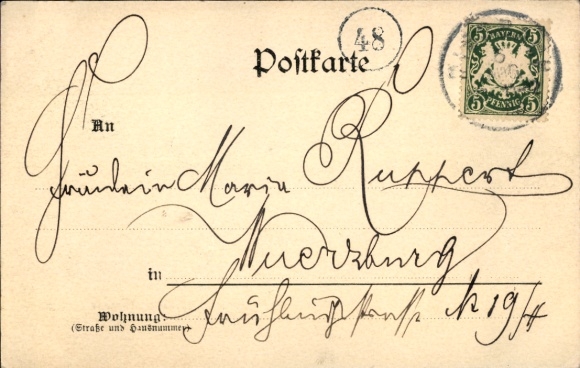 48
Postkarte
5 BAYERN 5
5 PFENNIG 5
An
Fräulein Maria Ruppert
in Wuerzburg
Wohnung:
(Straße und Hausnummer)
№ 19/II